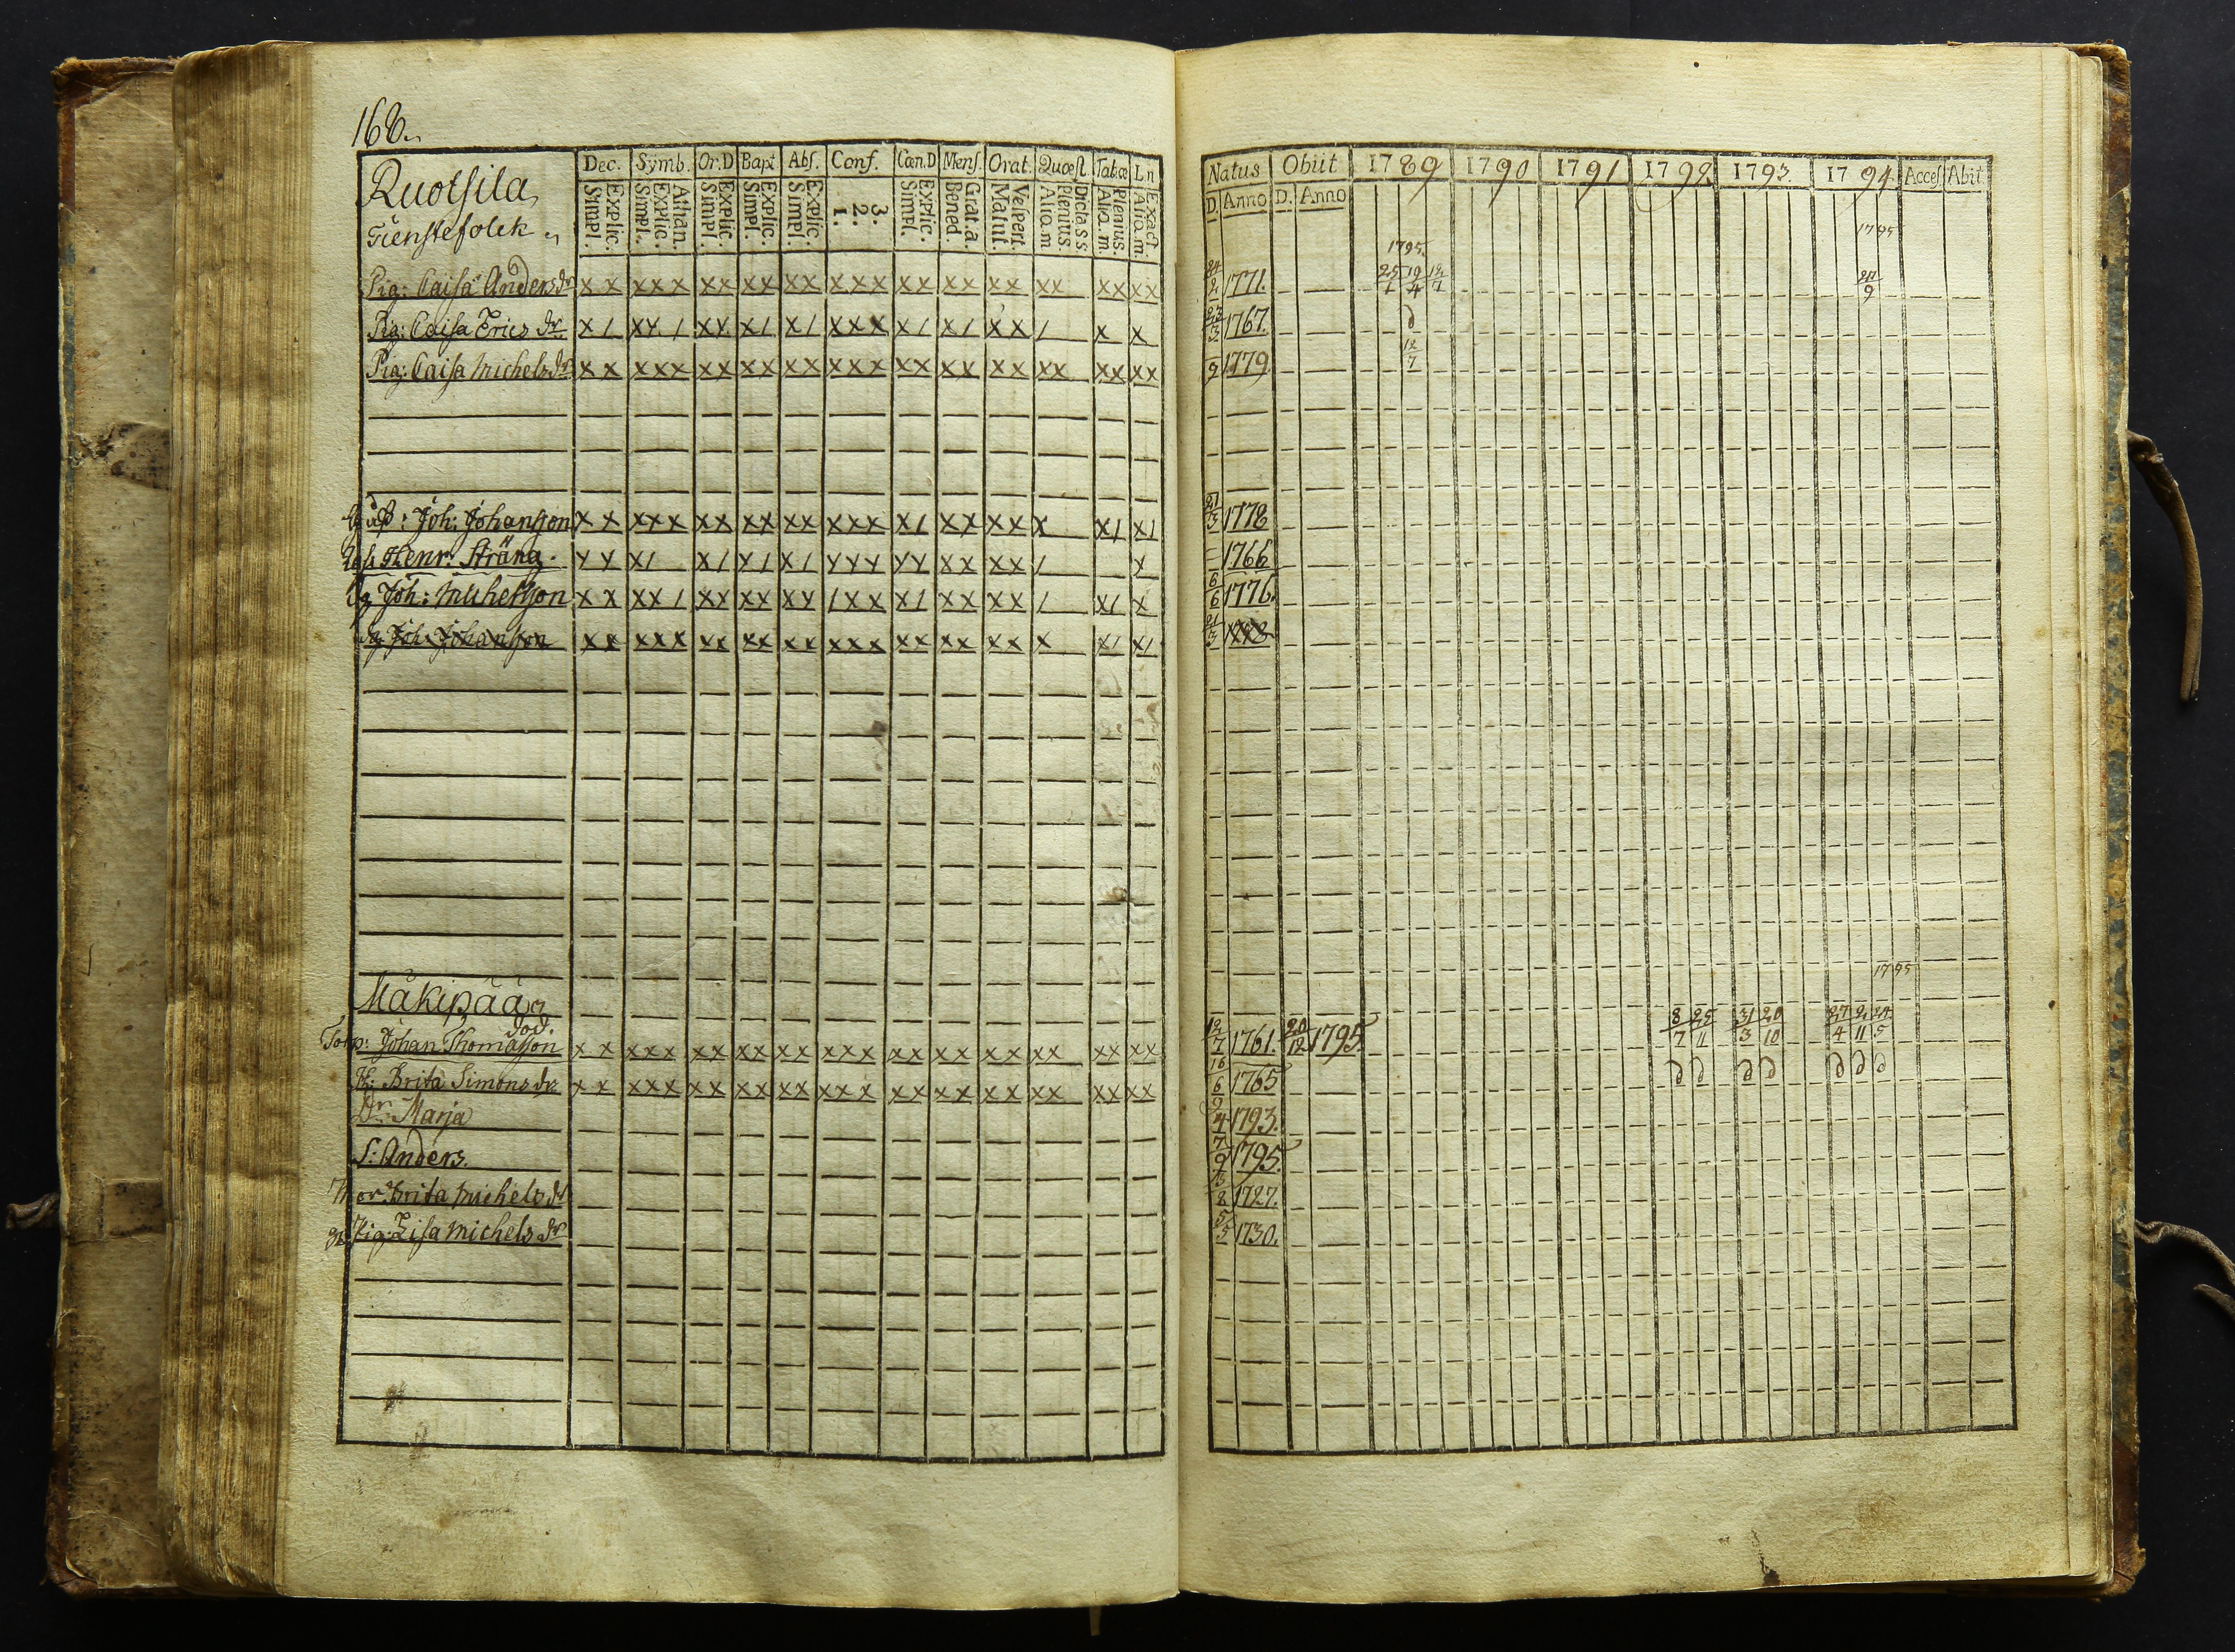 168.
Ruotsila
Tienstefolck
Dec. Symb. Or.D Bapt Abs. Conf. Cœn.D Mens. Orat. Quœst. Tabœ Ln
Explic. Simpl. Athan. Explic. Simpl. Explic. Simpl. Explic. Simpl. Explic. Simpl. 3. 2. 1. Explic. Simpl. Grat.a. Bened. Vespert. Matut. Dictas s. Plenius. Aliq.m. Plenius. Aliq.m. Exact. Aliq.m.
Natus Obiit 1789 1790 1791 1792 1793. 1794. Acces Abit
D. Anno D. Anno
1795. 1795
Pig: Caisa Andersdr x x x x x x x x x x x x x x x x x x x x x x x x x x x 24/2 1771. 25/1 19/4 12/7 27/9
Pig: Caisa Erics dr x / x x / x x x / x / x x x x / x / x x / x x 23/3 1767. d
Pig: Caisa Michelsdr x x x x x x x x x x x x x x x x x x x x x x x x x x x 9 1779 12/7
Joh: Johansson x x x x x x x x x x x x x x x / x x x x x x / x / 21/3 1778
Henr: Sträng. x x x / x / x / x / x x x x x x x x x / x 1766
Joh: Michelsson x x x x / x x x x x x / x x x / x x x x / x / x 6/6 1776.
Joh: Johansson x x x x x x x x x x x x x x x x x x x x x x / x / 21/3
Mäkipää
1795
död.
Torp: Johan Thomasson x x x x x x x x x x x x x x x x x x x x x x x x x x x 12/7 1761. 20/12 1795. 8/7 25/11 31/3 20/10 27/4 2/11 24/5
H: Brita Simons dr x x x x x x x x x x x x x x x x x x x x x x x x x x x 16/6 1765 d d d d d d d
Dr: Marja 9/4 1793.
S: Anders. 7/9 1795.
Mor Brita Michelsdr 8 1727.
Pig: Lisa Michels dr 5/5 1730.